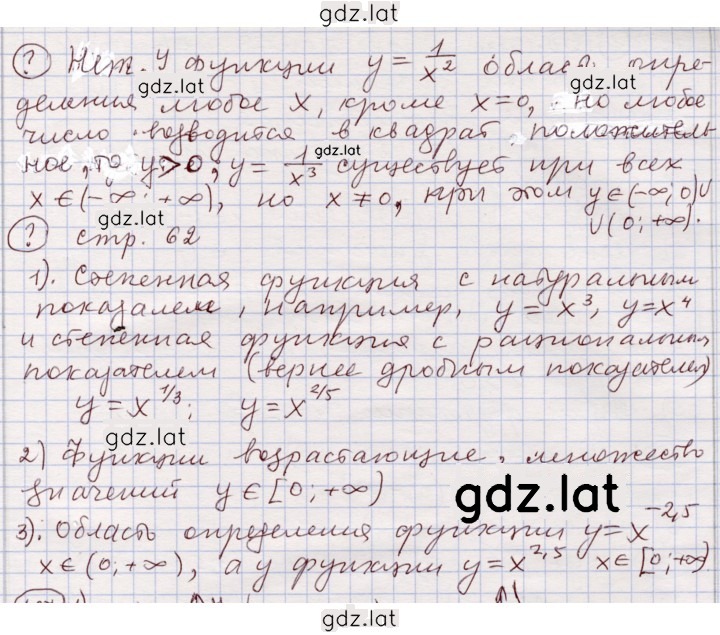 gdz.lat
? Нет. У функции y = 1/x² область опре-
gdz.lat
деления любое x, кроме x=0, но любое
число возводится в квадрат положитель-
ное, то y>0, y = 1/x³ существует при всех
gdz.lat
x∈(-∞; +∞), но x≠0, при этом y∈(-∞; 0)∪
gdz.lat
∪(0; +∞).
? стр. 62
1). Степенная функция с натуральным
показалем, например, y = x³, y=x⁴
gdz.lat
и степенная функция с рациональным
показателем (вернее дробным показателем)
y = x^1/3; y = x^2/5
gdz.lat
2) Функции возрастающие, множество
значений y∈[0; +∞)
gdz.lat
3). Область определения функции y = x^-2,5
x∈(0; +∞), а у функции y = x^2,5 x∈[0; +∞)
gdz.lat